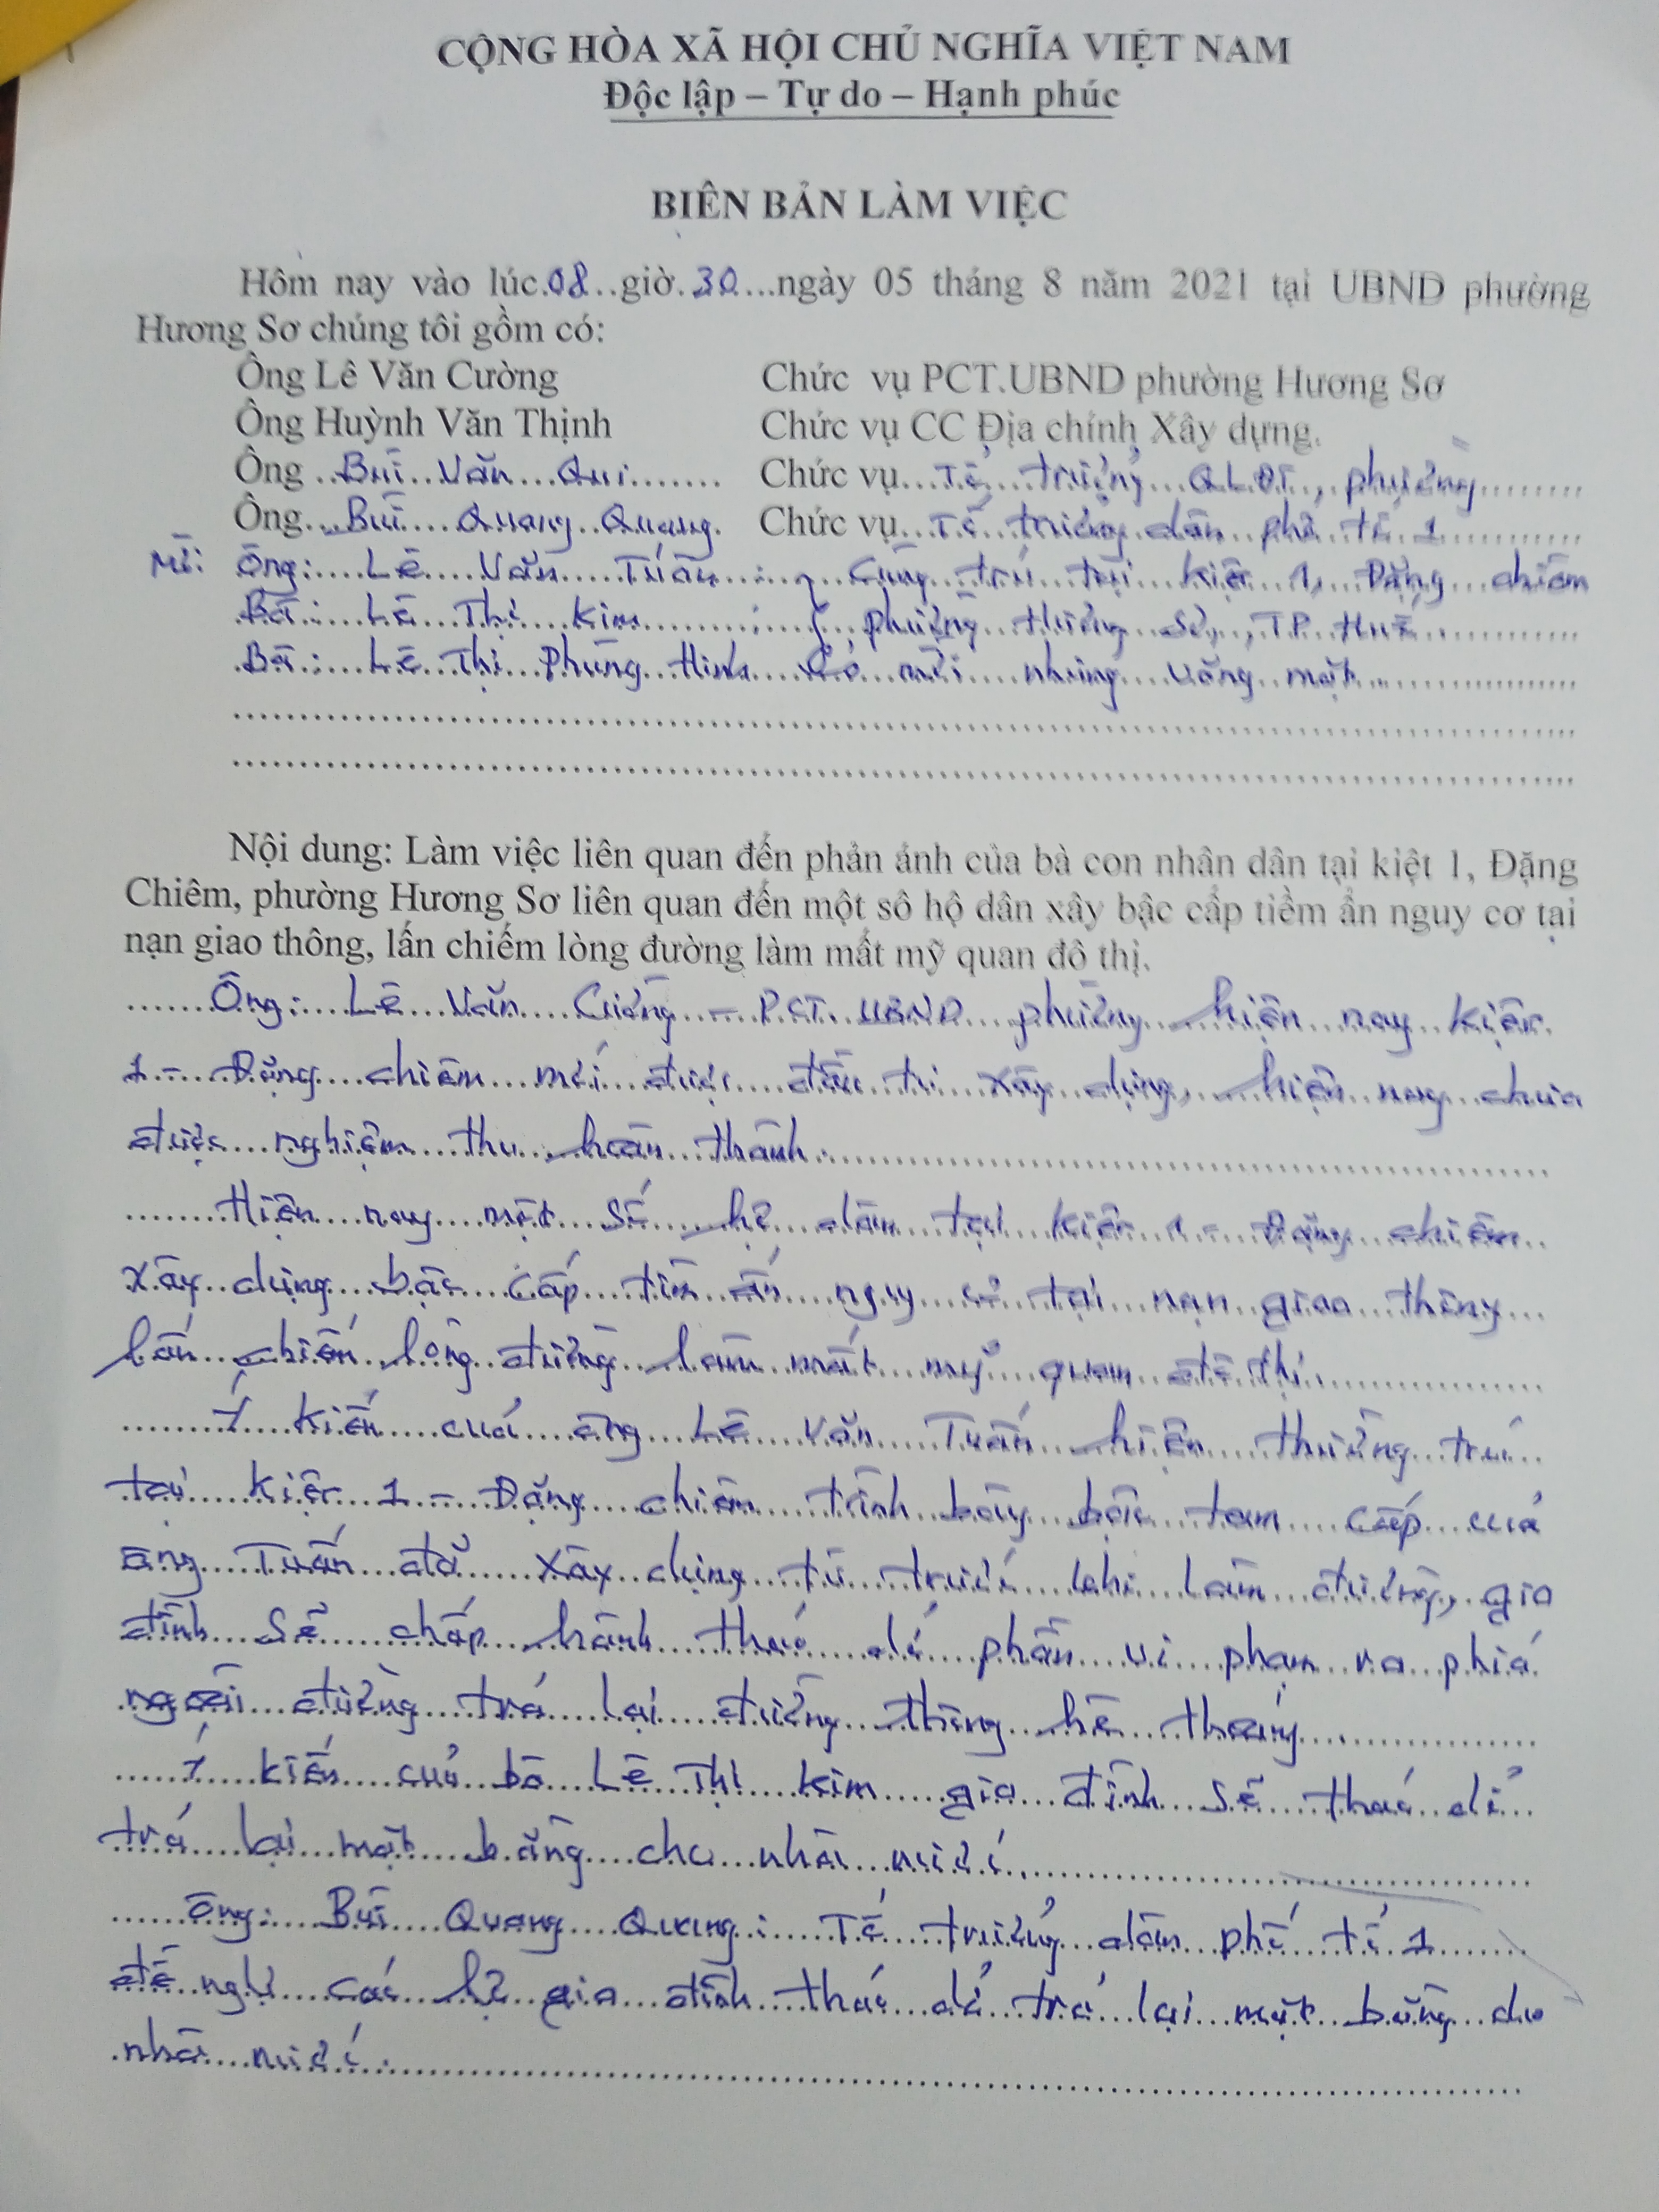 CỘNG HÒA XÃ HỘI CHỦ NGHĨA VIỆT NAM
Độc lập – Tự do – Hạnh phúc
BIÊN BẢN LÀM VIỆC
Hôm nay vào lúc 08 giờ 30 ngày 05 tháng 8 năm 2021 tại UBND phường
Hương Sơ chúng tôi gồm có:
Ông Lê Văn Cường Chức vụ PCT.UBND phường Hương Sơ
Ông Huỳnh Văn Thịnh Chức vụ CC Địa chính Xây dựng.
Ông Bùi Văn Qui Chức vụ Tổ trưởng QLĐT, phường
Ông Bùi Quang Quang Chức vụ Tổ trưởng dân phố tổ 1
Mời: Ông: Lê Văn Tuấn : Cùng trú tại Kiệt 1, Đặng Chiêm
Bà: Lê Thị Kim : phường Hương Sơ, TP Huế
Bà: Lê Thị Phương Có mời nhưng vắng mặt
Nội dung: Làm việc liên quan đến phản ánh của bà con nhân dân tại kiệt 1, Đặng
Chiêm, phường Hương Sơ liên quan đến một số hộ dân xây bậc cấp tiềm ẩn nguy cơ tại
nạn giao thông, lấn chiếm lòng đường làm mất mỹ quan đô thị.
Ông: Lê Văn Cường – PCT. UBND phường hiện nay Kiệt
1 – Đặng Chiêm mới được đầu tư xây dựng, hiện nay chưa
được nghiệm thu hoàn thành.
Hiện nay một số hộ dân tại Kiệt 1 – Đặng Chiêm
xây dựng bậc cấp tiềm ẩn nguy cơ tai nạn giao thông
lấn chiếm lòng đường làm mất mỹ quan đô thị.
Ý kiến của ông Lê Văn Tuấn hiện thường trú
tại Kiệt 1 – Đặng Chiêm trình bày bậc tam cấp của
ông Tuấn đã xây dựng từ trước khi làm đường, gia
đình sẽ chấp hành tháo dỡ phần vi phạm ra phía
ngoài đường trả lại đường thông hè thoáng
Ý kiến của bà Lê Thị Kim gia đình sẽ tháo dỡ
trả lại mặt bằng cho nhà nước.
Ông: Bùi Quang Quang: Tổ trưởng dân phố tổ 1
đề nghị các hộ gia đình tháo dỡ trả lại mặt bằng cho
nhà nước.